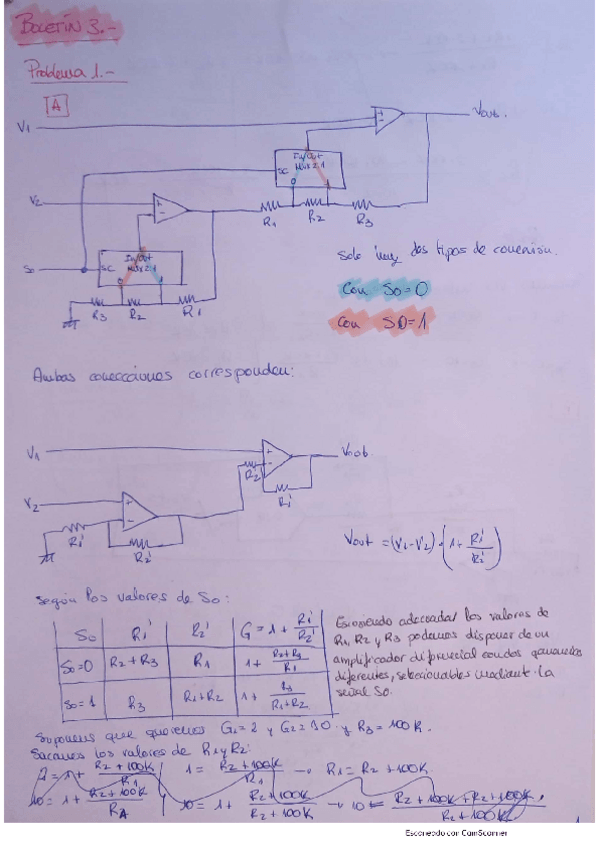 BOLETÍN 3.-
Problema 1.-
A
V1
Vout.
In/Out
SC Mux 2:1
0 1
V2
R1 R2 R3
In/Out
S0 SC Mux 2:1
0 1
R3 R2 R1
Solo hay dos tipos de conexión.
Con S0=0
Con S0=1
Ambas conecciones corresponden:
V1
R2'
R1'
V2
R1'
R2'
Vout = (V1-V2)·(1+ R1'/R2')
Según los valores de S0:
S0 R1' R2' G = 1 + R1'/R2'
S0=0 R2+R3 R1 1 + R2+R3/R1
S0=1 R3 R1+R2 1 + R3/R1+R2
Escogiendo adecuadas los valores de
R1, R2 y R3 podemos disponer de un
amplificador diferencial con dos ganancias
diferentes, seleccionables mediante la
señal S0.
Suponemos que queremos G1=2 y G2=10 y R3=100K.
Sacamos los valores de R1 y R2:
2 = 1 + R2+100K/R1 1 = R2+100K/R1 → R1 = R2+100K
10 = 1 + R2+100K/RA 10 = 1 + R2+100K/R2+100K → 10 = R2+100K+R2+100K/R2+100K
1
Escaneado con CamScanner